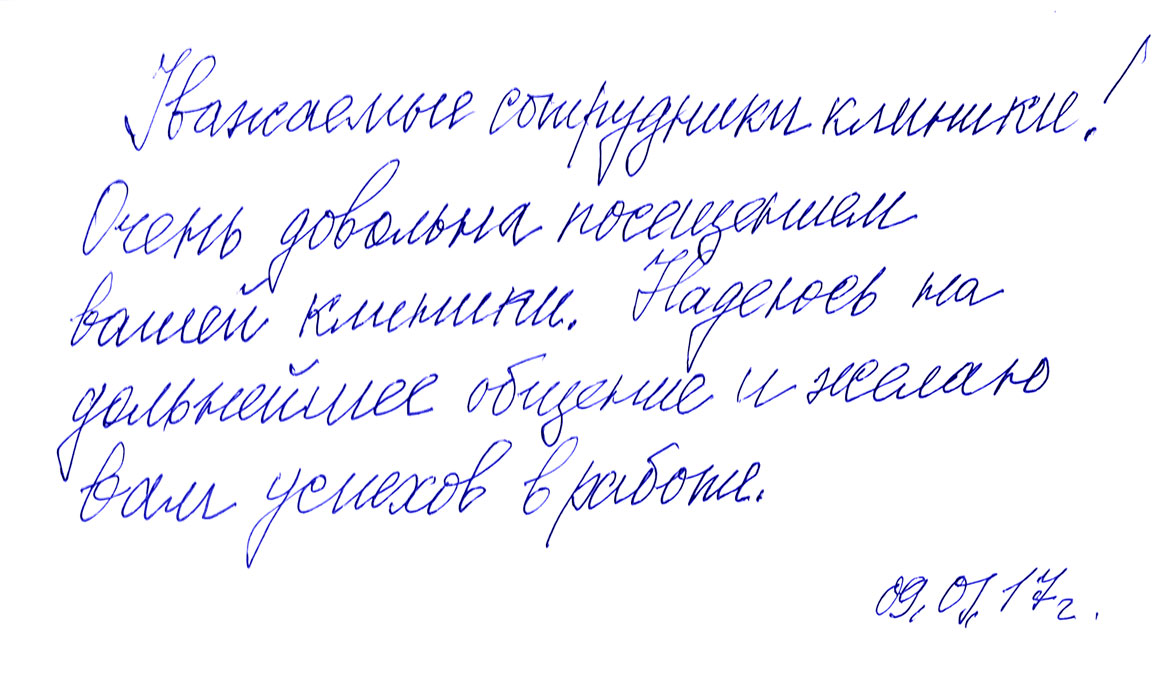 Уважаемые сотрудники клиники!
Очень довольна посещением
вашей клиники. Надеюсь на
дальнейшее общение и желаю
вам успехов в работе.
09.01.17г.